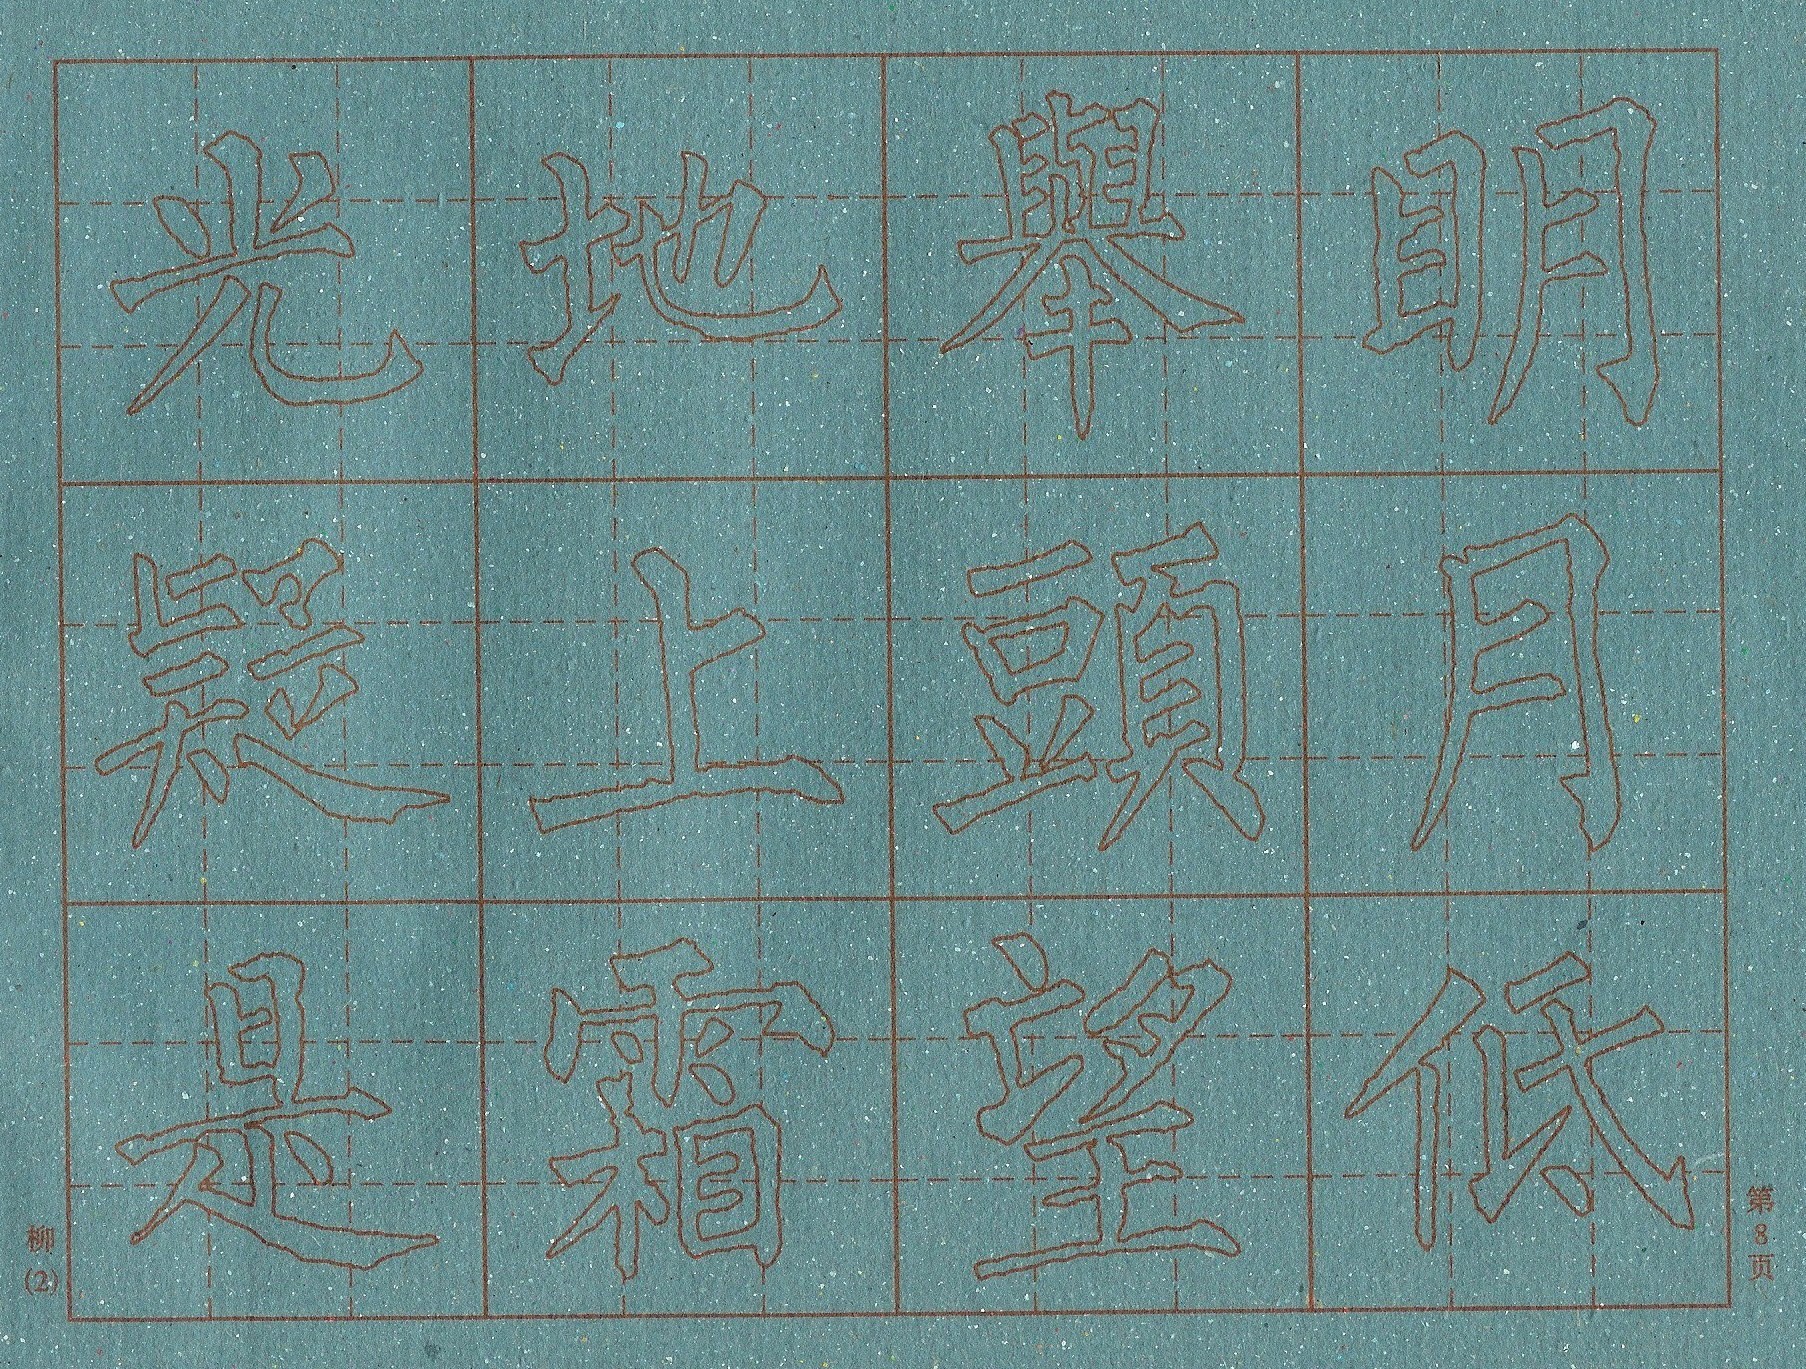 光疑是
地上霜
舉頭望
明月低
柳(2)
第8页